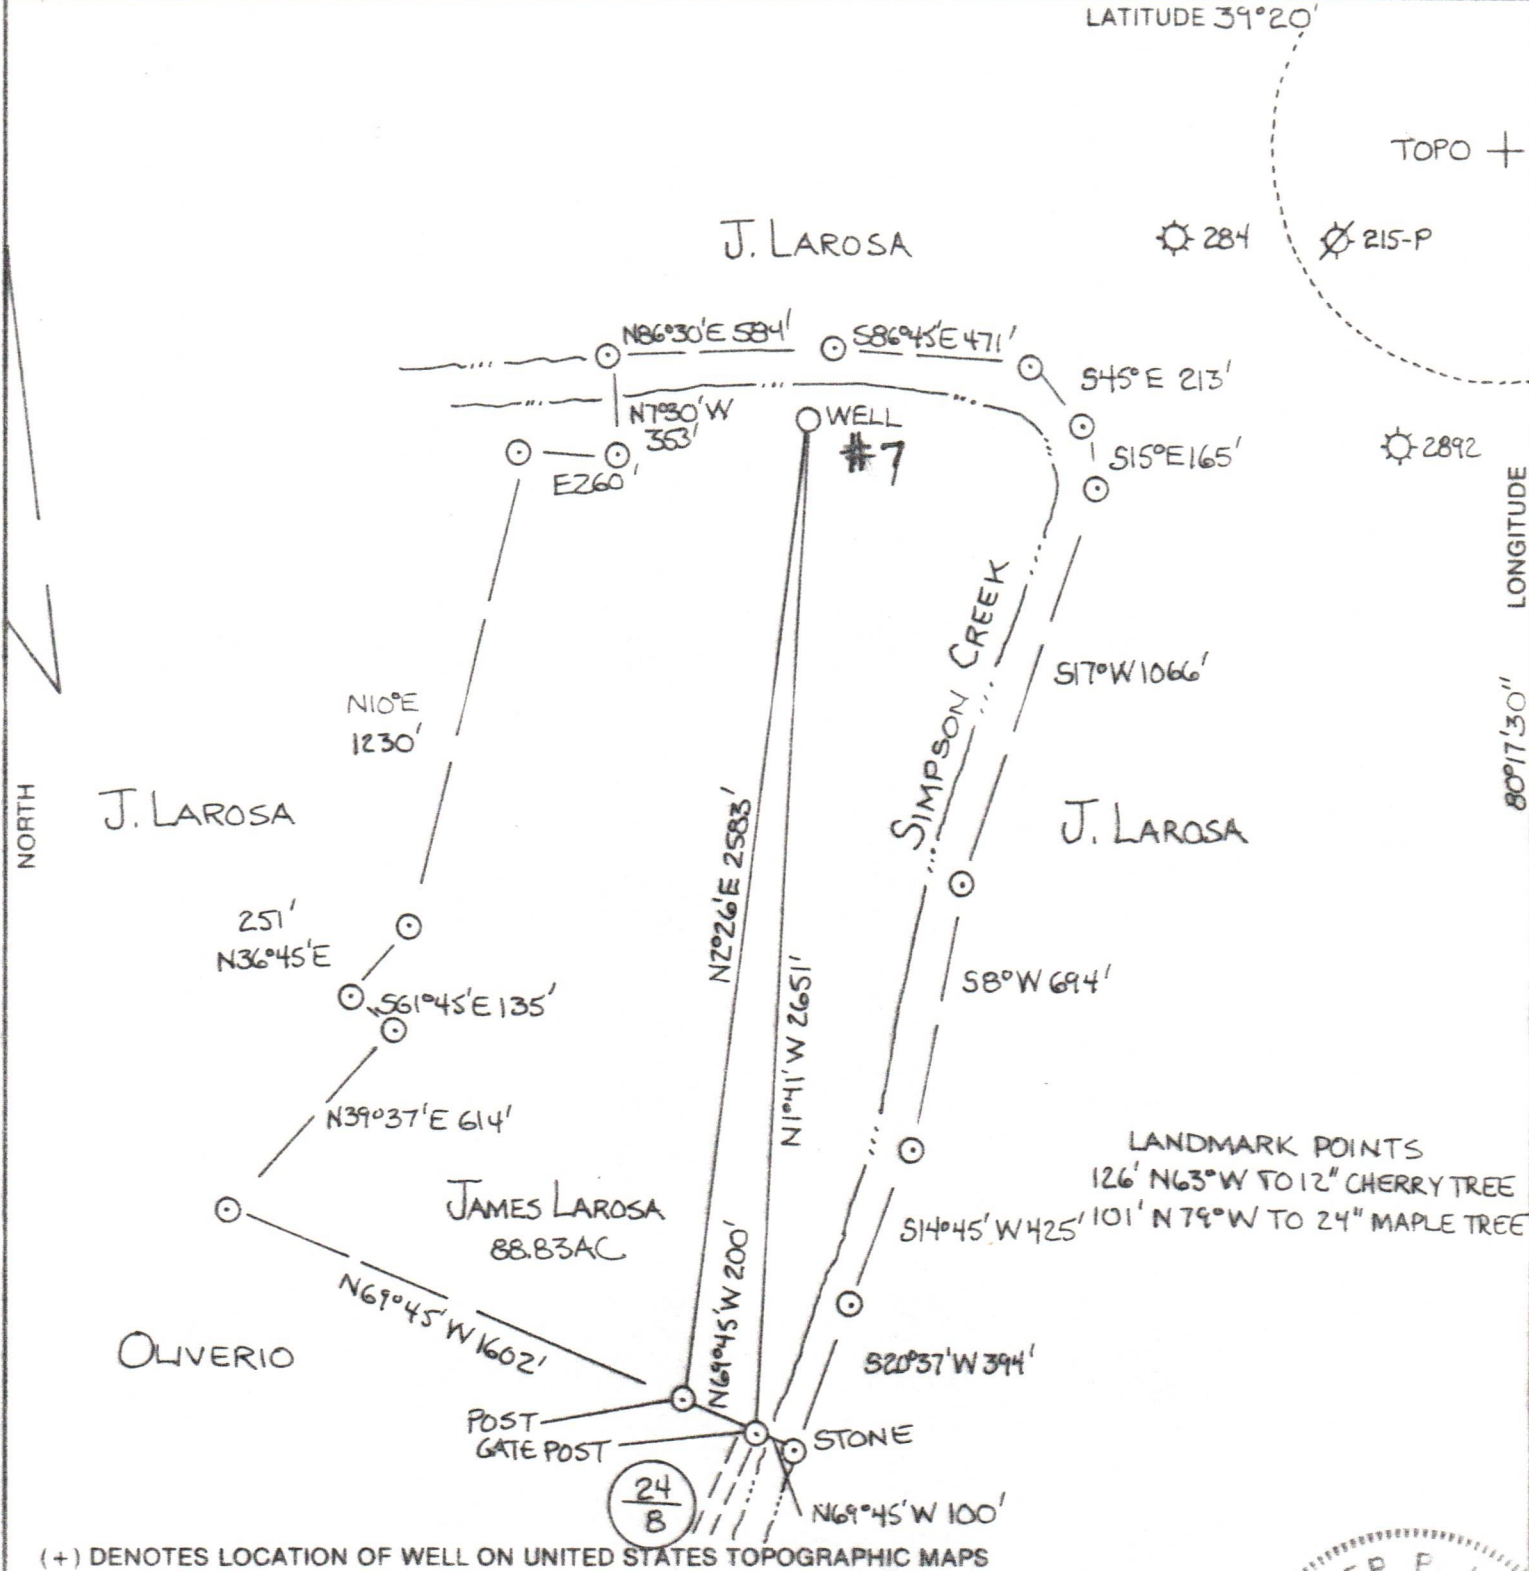 LATITUDE 39°20'
TOPO
J. LAROSA
284
215-P
N86°30'E 584'
S86°45'E 471'
S45°E 213'
N7°30'W
353'
WELL
#7
S15°E 165'
2892
E260'
LONGITUDE
80°17'30"
SIMPSON CREEK
S17°W 1066'
N10°E
1230'
NORTH
J. LAROSA
J. LAROSA
N2°26'E 2583'
N1°41'W 2651'
251'
N36°45'E
S61°45'E 135'
S8°W 694'
N39°37'E 614'
LANDMARK POINTS
126' N63°W TO 12" CHERRY TREE
101' N79°W TO 24" MAPLE TREE
JAMES LAROSA
88.83AC
S14°45'W 425'
N69°45'W 200'
N69°45'W 1602'
OLIVERIO
S20°37'W 394'
POST
GATE POST
STONE
24
8
N69°45'W 100'
(+) DENOTES LOCATION OF WELL ON UNITED STATES TOPOGRAPHIC MAPS